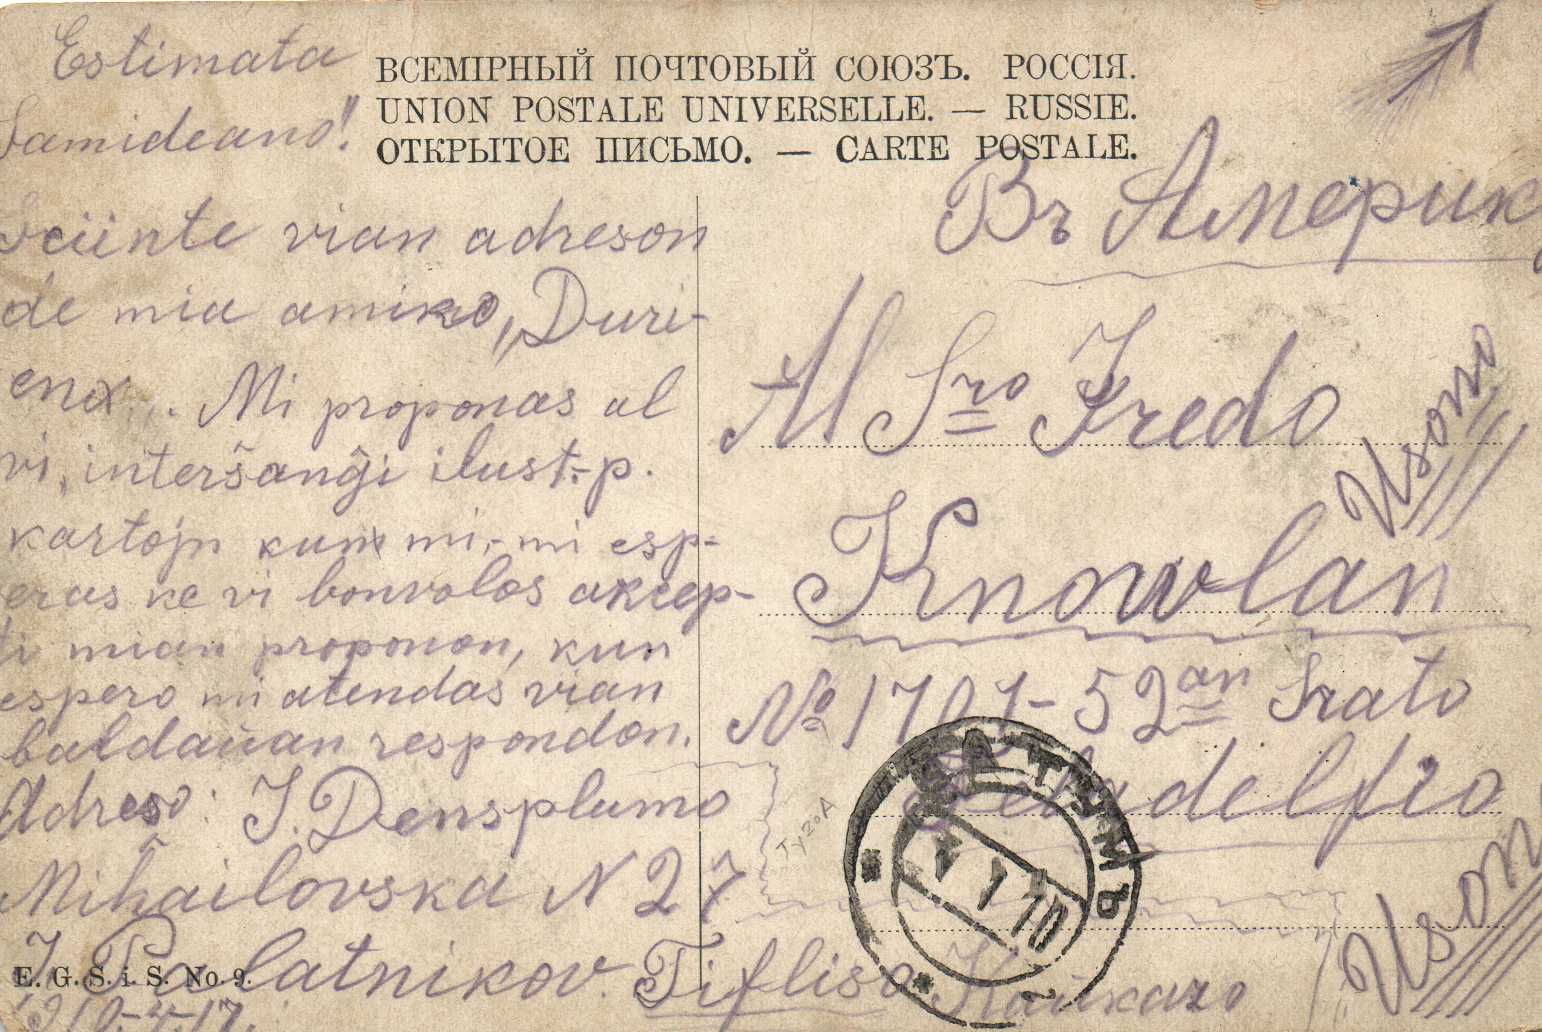 ВСЕМІРНЫЙ ПОЧТОВЫЙ СОЮЗЪ. РОССІЯ.
UNION POSTALE UNIVERSELLE. — RUSSIE.
ОТКРЫТОЕ ПИСЬМО. — CARTE POSTALE.
Estimata
Samideano!
Sciinte vian adreson
de mia amiko, „Duri-
enx... Mi proponas al
vi, interŝanĝi ilust.-p.
kartojn kun mi,- mi esp-
eras ke vi bonvolos akcep-
ti mian proponon, kun
espero mi atendas vian
baldaŭan respondon.
Adreso: J. Densplumo
Miĥailovska N 27
J. Palatnikov. Tifliso Kaŭkazo
E. G. S. i. S. No. 9.
Въ Америку
Al Sro Fredo
Usono
Knowlan
№ 1701-52an Strato
Filadelfio
Usono
БАТУМЪ